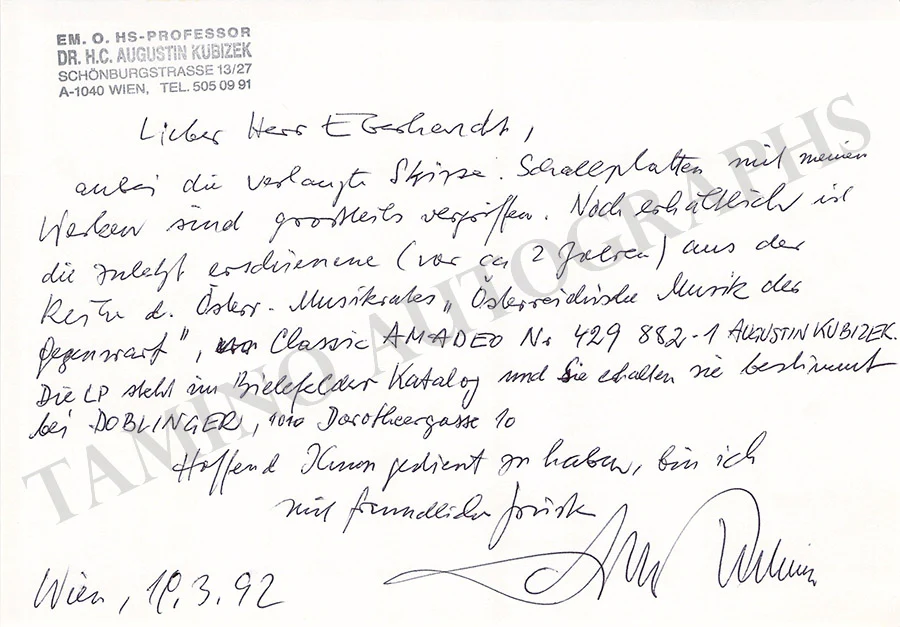 EM. O. HS-PROFESSOR
DR. H.C. AUGUSTIN KUBIZEK
SCHÖNBURGSTRASSE 13/27
A-1040 WIEN, TEL. 505 09 91
Lieber Herr Eberhardt,
anbei die verlangte Skizze. Schallplatten mit meinen
Werken sind großteils vergriffen. Noch erhältlich ist
die zuletzt erschienene (vor ca 2 Jahren) aus der
Reihe d. Österr. Musikrates „Österreichische Musik der
Gegenwart", Classic AMADEO Nr 429 882-1 AUGUSTIN KUBIZEK.
Die LP steht im Bielefelder Katalog und Sie erhalten sie bestimmt
bei DOBLINGER, 1010 Dorotheergasse 10
Hoffend Ihnen gedient zu haben, bin ich
mit freundlichen Grüßen
Wien, 19.3.92
TAMINO AUTOGRAPHS